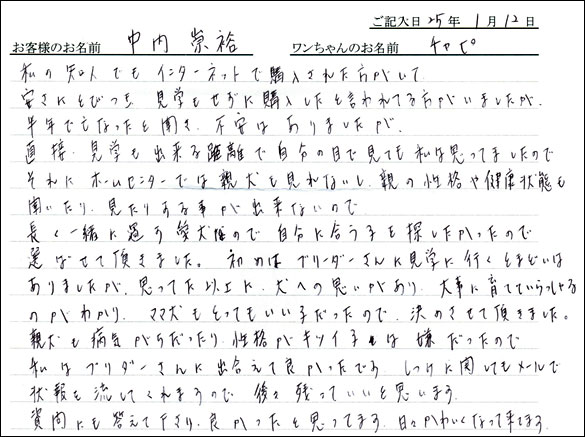 ご記入日 25年 1月 12日
お客様のお名前 中内 崇裕 ワンちゃんのお名前 チャピ
私の知人でもインターネットで購入された方がいて
安さにとびつき、見学もせずに購入したと言われてる方がいましたが、
半年で亡なったと聞き、不安はありましたが、
直接、見学も出来る距離で自分の目で見ても私は思ってましたので
それにホームセンターでは親犬も見れないし、親の性格や健康状態も
聞いたり、見たりする事が出来ないので
長く一緒に過す愛犬なので自分に合う子を探したかったので
選ばせて頂きました。初めはブリーダーさんに見学に行くとまどいは
ありましたが、思ってた以上に、犬への思いがあり、大事に育てていらっしゃる
のがわかり、ママ犬もとってもいい子だったので、決めさせて頂きました。
親犬も病気がちだったり、性格がキツイ子は嫌だったので
私はブリダーさんに出合えて良かったです。しつけに関してもメールで
状報を流してくれますので、後々残っていいと思います。
質問にも答えて下さり、良かったと思ってます。日々かわいくなって来てます。